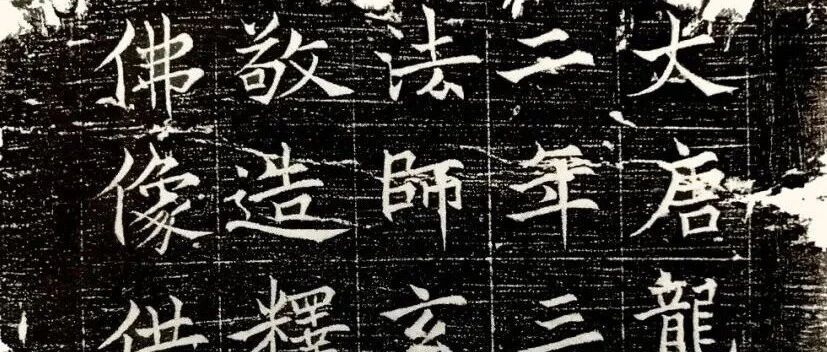 大唐龍
二年三
法師玄
敬造釋
佛像供